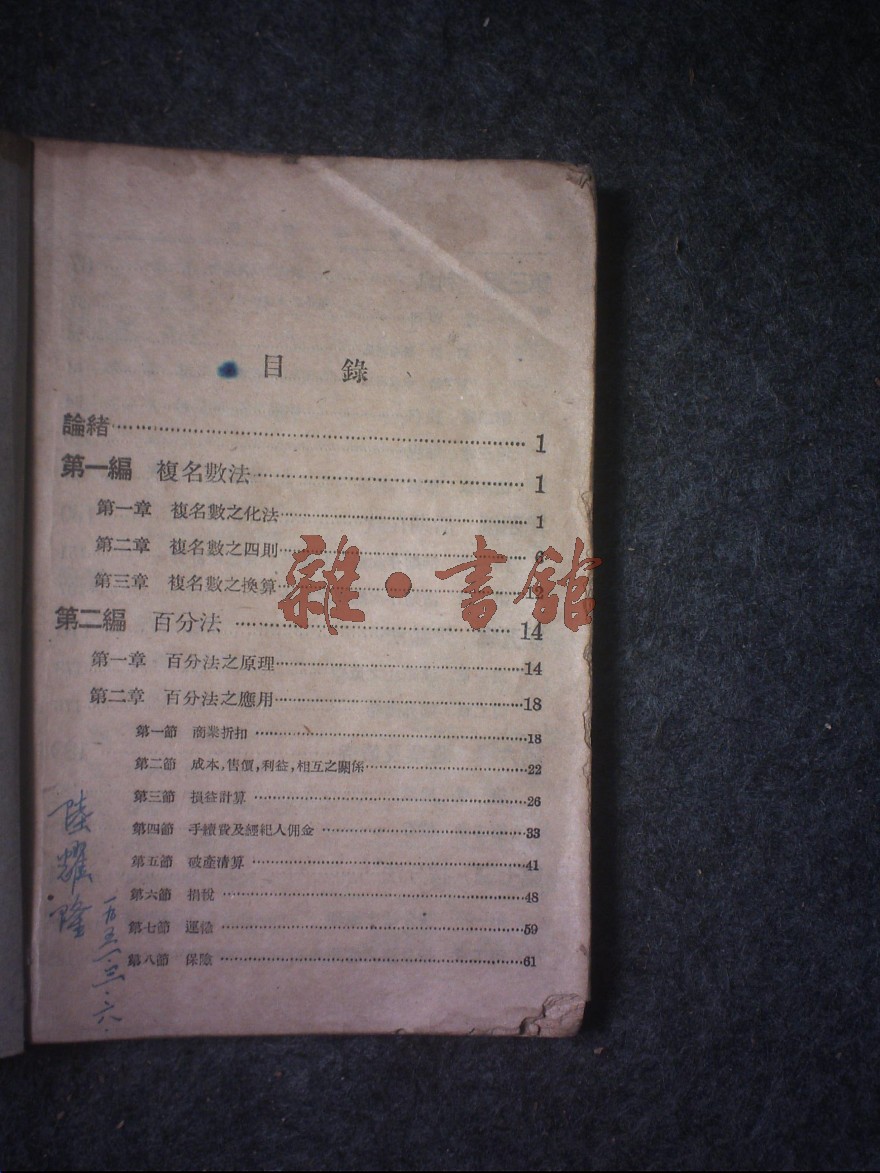 目　錄
論緒……1
第一編　複名數法……1
第一章　複名數之化法……1
第二章　複名數之四則……6
第三章　複名數之換算……12
第二編　百分法……14
第一章　百分法之原理……14
第二章　百分法之應用……18
第一節　商業折扣……18
第二節　成本，售價，利益，相互之關係……22
第三節　損益計算……26
第四節　手續費及經紀人佣金……33
第五節　破產清算……41
第六節　捐稅……48
第七節　運輸……59
第八節　保險……61
陸耀隆
一九五一.三.六.
雜·書館